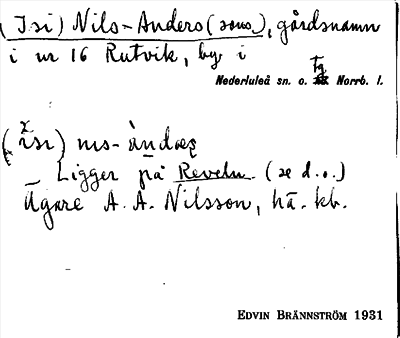 (Isi) Nils-Anders(sons), gårdsnamn
i nr 16 Rutvik, by i
Nederluleå sn. o. tg Norrb. l.
Ligger på Reveln (se d.o.)
Ägare A. A. Nilsson, hä. kb.
EDVIN BRÄNNSTRÖM 1931